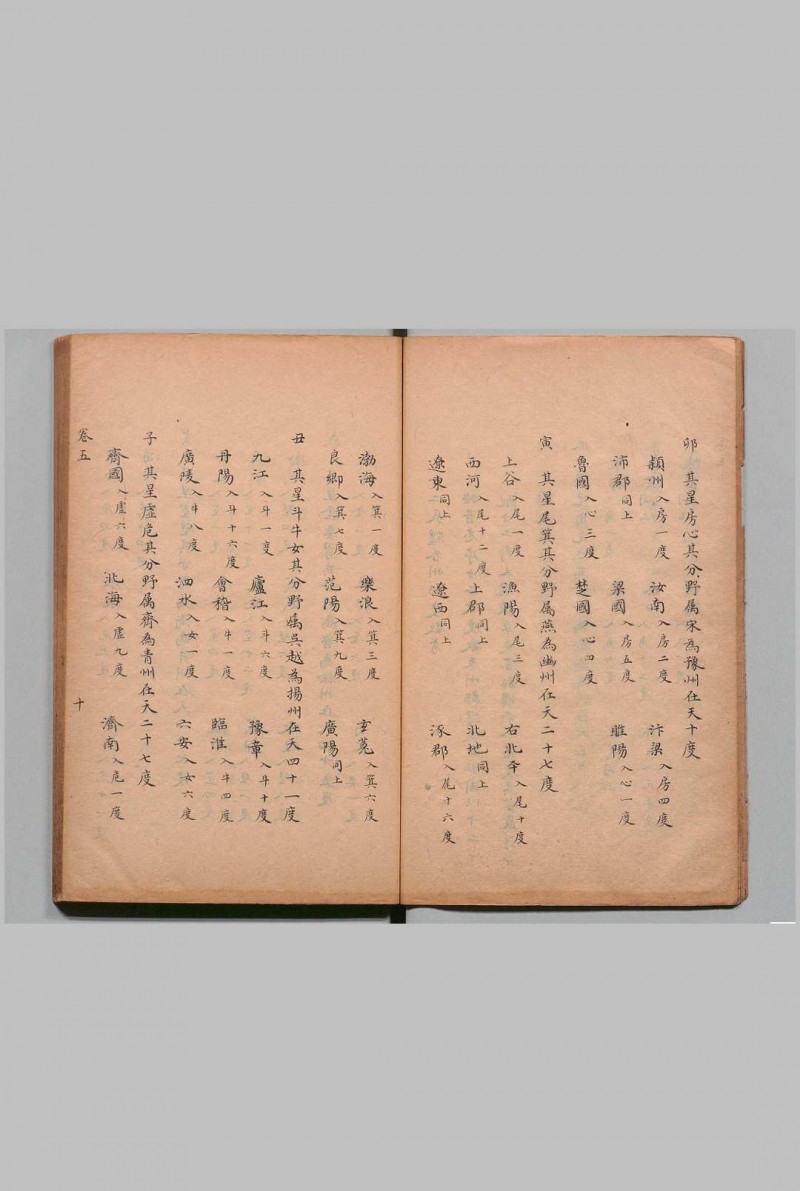 卯　其星房心其分野属宋為豫州在天十度
潁州入房一度　汝南入房二度　汴梁入房四度
沛郡同上　梁國入房五度　睢陽入心一度
魯國入心三度　楚國入心四度
寅　其星尾箕其分野属燕為幽州在天二十七度
上谷入尾一度　漁陽入尾三度　右北平入尾十度
西河入尾十二度　上郡同上　北地同上
遼東同上　遼西同上　涿郡入尾十六度
渤海入箕一度　樂浪入箕三度　玄菟入箕六度
良鄉入箕七度　范陽入箕九度　廣陽同上
丑　其星斗牛女其分野属吳越為揚州在天四十一度
九江入斗一度　廬江入斗六度　豫章入斗十度
丹陽入斗十六度　會稽入牛一度　臨淮入牛四度
廣陵入牛八度　泗水入女一度　六安入女六度
子　其星虛危其分野属齊為青州在天二十七度
齊國入虛六度　北海入虛九度　濟南入危一度
卷五　十